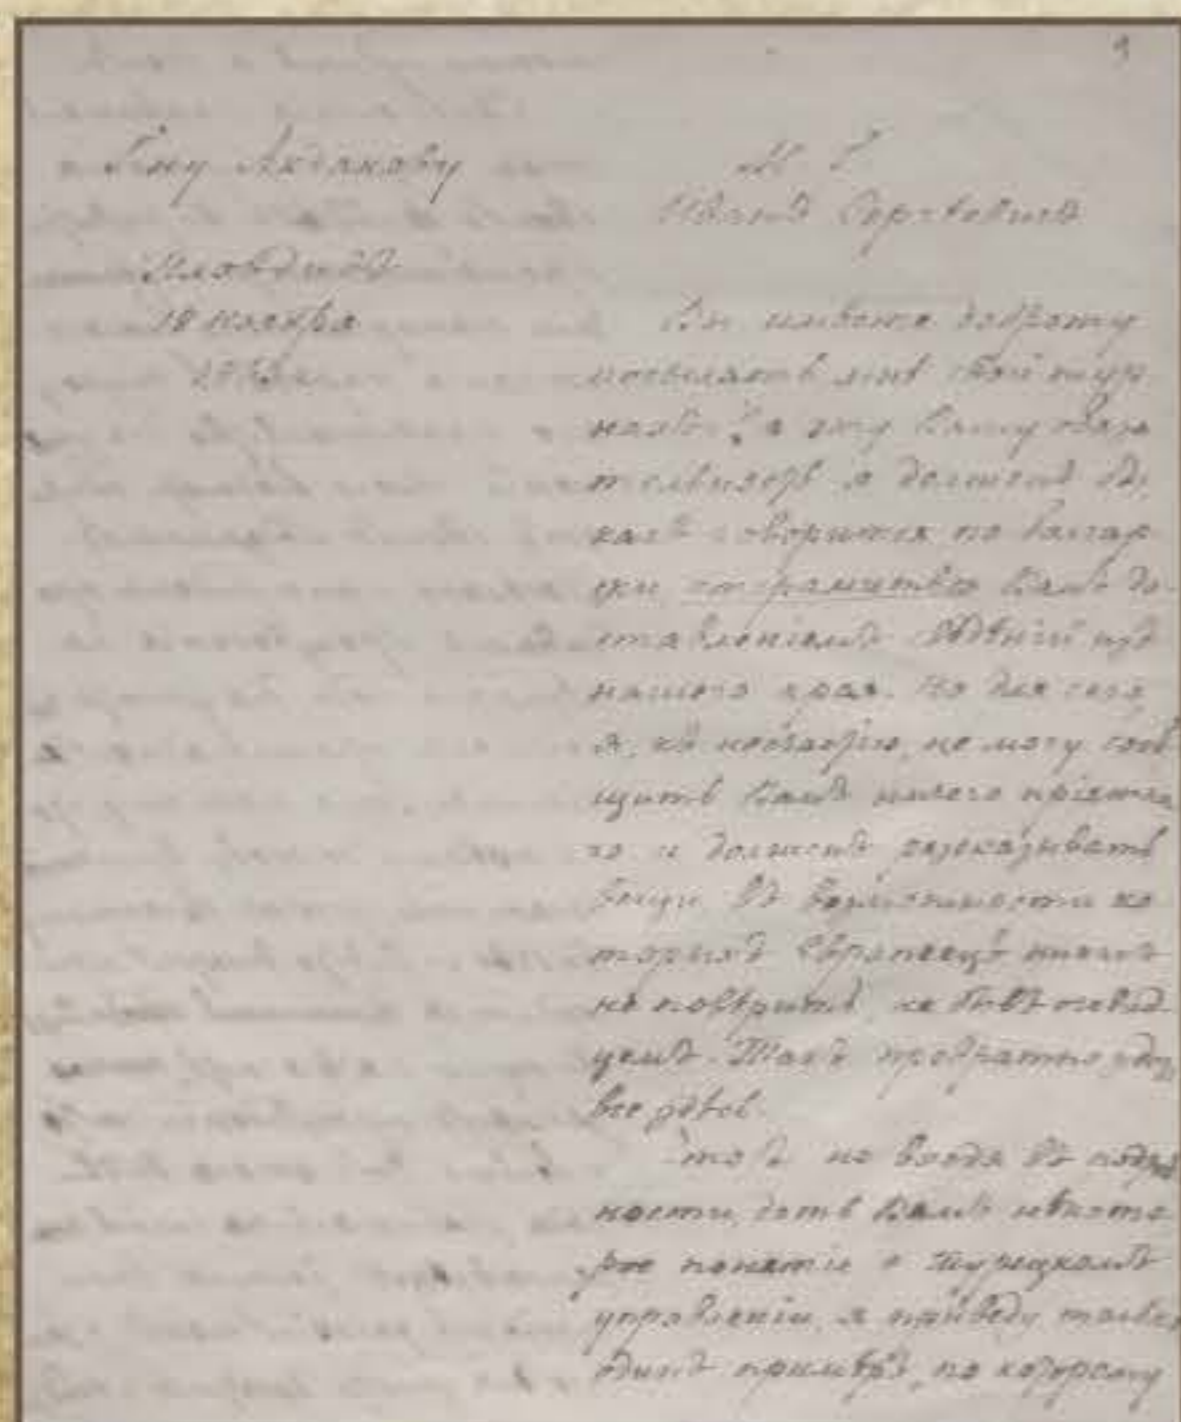 9
Г-ну Аксакову
Пловдивъ
18 ноября
М. Г.
Иванъ Сергѣевичъ
Вы имѣете доброту
посылать мнѣ свой жур
за эту Вашу обяза
тельность я долженъ
говорится по болгар
ски Вамъ до
ставленіемъ свѣдѣній изъ
нашего края. Но для сего
я, къ несчастію, не могу сооб
щить Вамъ ничего пріятна
го и долженъ разсказывать
вещи въ возможности ко
торыхъ Европеецъ никакъ
не повѣритъ, не бывъ очевид
цемъ. Такъ превратно здѣсь
все
Чтобъ не входя въ подроб
ности, дать Вамъ нѣкото
рое понятіе о Турецкомъ
управленіи, я приведу только
одинъ примѣръ, по которому